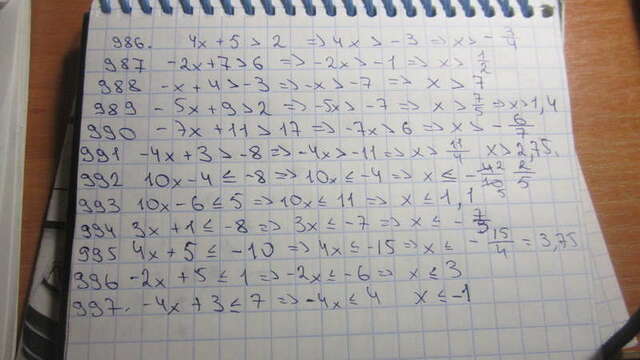 986. 4x + 5 > 2 => 4x > -3 => x > -3/4
987 -2x+7>6 => -2x > -1 => x > 1/2
988 -x + 4 > -3 => -x > -7 => x > 7
989 - 5x + 9 > 2 => -5x > -7 => x > 7/5 => x > 1,4
990 - 7x + 11 > 17 => -7x > 6 => x > -6/7
991 -4x + 3 > -8 => -4x > -11 => x > 11/4 x > 2,75.
992 10x - 4 ≤ -8 => 10x ≤ -4 => x ≤ - 2/5
993 10x - 6 ≤ 5 => 10x ≤ 11 => x ≤ 1,1
994 3x + 1 ≤ -8 => 3x ≤ -7 => x ≤ -7/3
995 4x + 5 ≤ -10 => 4x ≤ -15 => x ≤ -15/4 = 3,75
996 -2x + 5 ≤ 1 => -2x ≤ -6 => x ≤ 3
997. -4x + 3 ≤ 7 => -4x ≤ 4 x ≤ -1